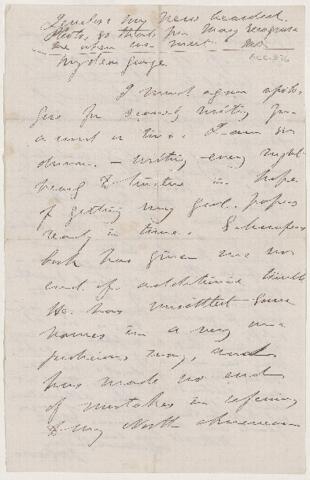 I enclose my new bearded
Photo, so that you may recognise
me when we meet.
My dear George
I must again apolo-
gise for scarcely writing for
a word or two. I am so
driven. – writing every night
being & time in hope
of getting my Geol. papers
ready in time.
book has given me no
end of additional trouble
He has omitted some
names in a very in-
judicious way, and
has made no end
of mistakes in referring
to my North American